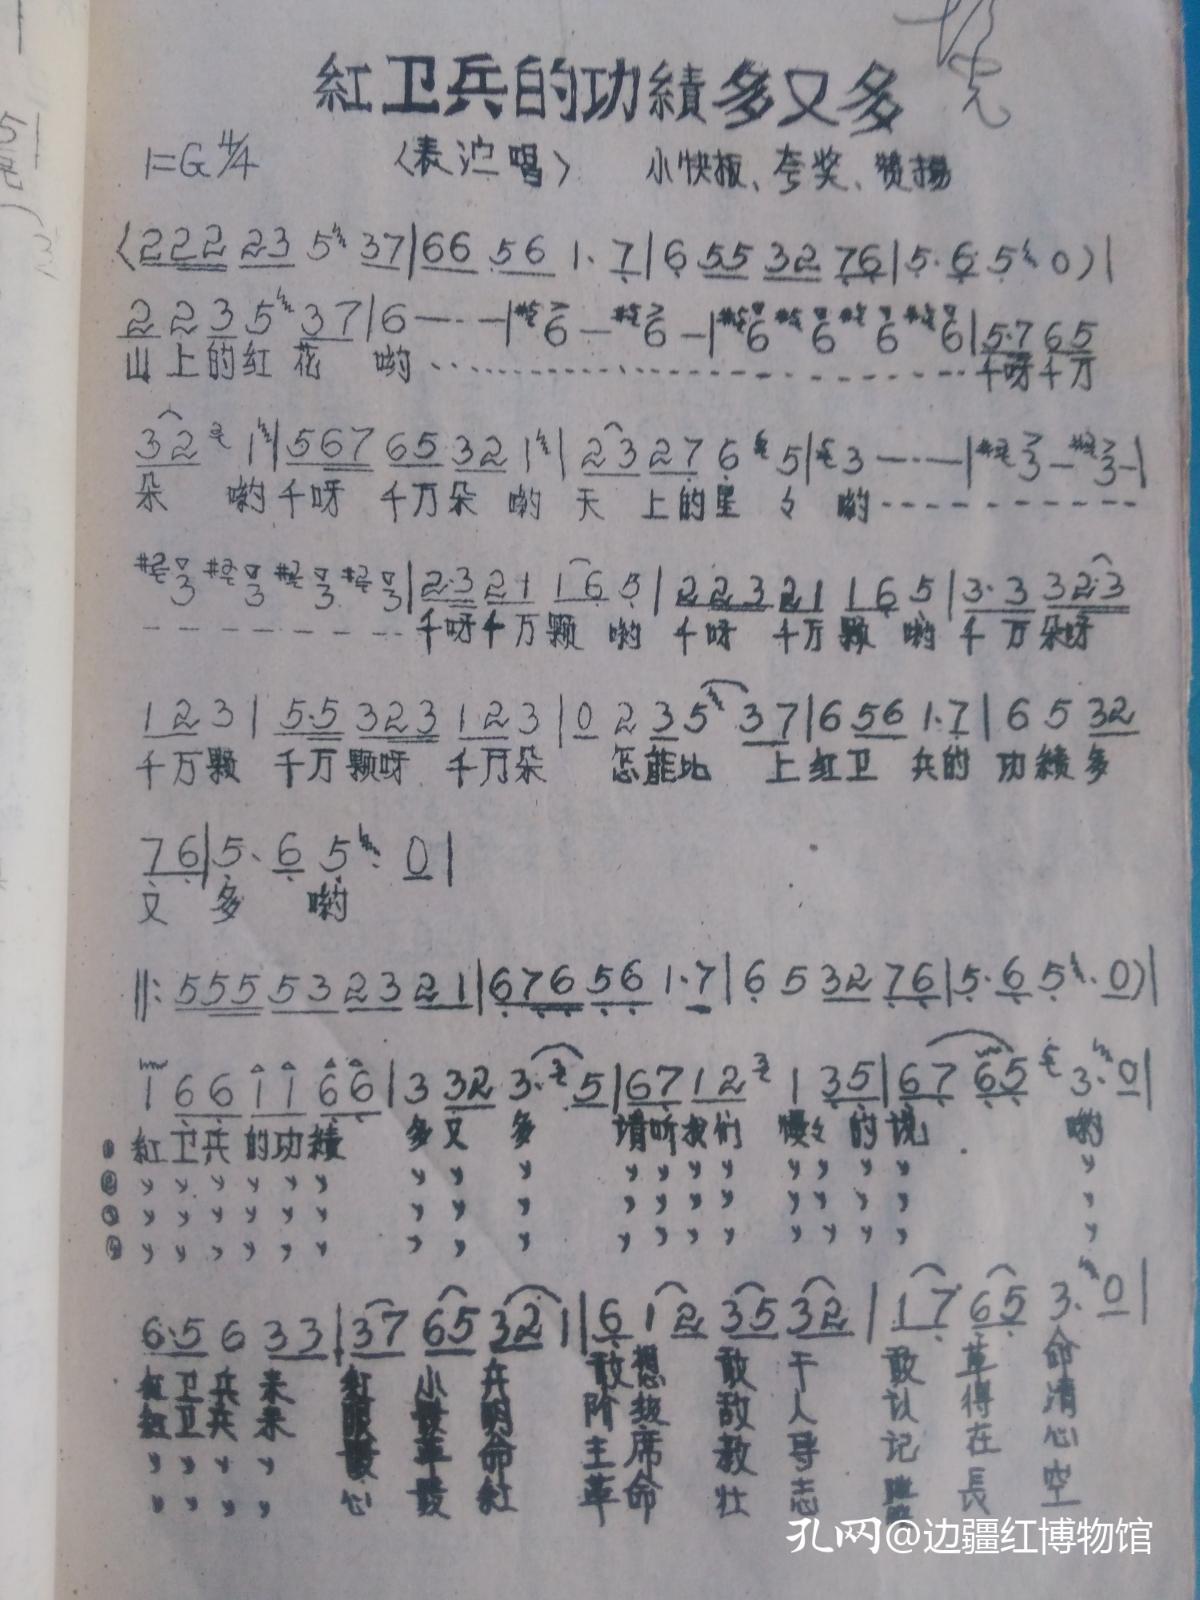 紅卫兵的功績多又多
1=G 4/4 〈表演唱〉 小快板、夸奖、赞揚
〈222 23 5 37|66 56 1·7|6 55 32 76|5·6 5 0〉|
2 2 3 5 37|6 — · — |6 — 6 — |6 6 6 6|5·7 65
山上的红花 哟 千呀千万
32 1|567 65 32 1|23 27 6 5|3 — · — |3 — 3 — |
朵 哟千呀 千万朵 哟 天 上的星 々 哟
3 3 3 3|2·3 21 16 5|223 21 16 5|3·3 32·3
千呀千万颗 哟 千呀 千万颗 哟 千万朵呀
1 2 3|5·5 323 1 2 3|0 2 35 37|6 56 1·7|6 5 32
千万颗 千万颗呀 千万朵 怎能比 上红卫 兵的 功績多
76|5·6 5· 0|
又 多 哟
‖:555 53 23 21|676 56 1·7|6 5 32 76|5·6 5· 0)|
1 66 11 66|3 32 3· 5|67 12 1 35|67 65 3· 0|
① 紅卫兵的功績 多又 多 请听我们 慢々的说 哟
② 〃 〃 〃 〃 〃 〃 〃 〃 〃 〃 〃 〃 〃 〃 〃 〃 〃 〃
③ 〃 〃 〃 〃 〃 〃 〃 〃 〃 〃 〃 〃 〃 〃 〃 〃 〃 〃
④ 〃 〃 〃 〃 〃 〃 〃 〃 〃 〃 〃 〃 〃 〃 〃 〃 〃 〃
6·5 6 33|37 65 32 1|6 12 35 32|17 65 3· 0|
红卫兵来 紅小兵 敢想敢干敢革命
红卫兵来 眼 明 阶级敌人认得清
〃 〃 〃 〃 革命 主席教导记在心
〃 〃 〃 〃 心 红 革命壮志 長空
孔网@边疆红博物馆